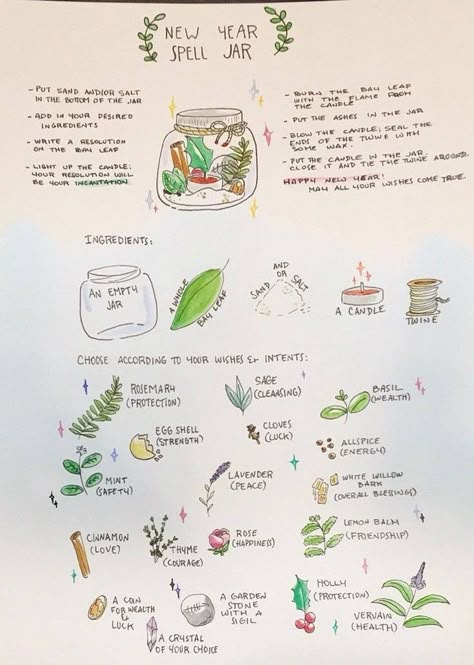 NEW YEAR
SPELL JAR
- PUT SAND AND/OR SALT
IN THE BOTTOM OF THE JAR
- ADD IN YOUR DESIRED
INGREDIENTS
- WRITE A RESOLUTION
ON THE BAY LEAF
- LIGHT UP THE CANDLE;
YOUR RESOLUTION WILL
BE YOUR INCANTATION
- BURN THE BAY LEAF
WITH THE FLAME FROM
THE CANDLE
- PUT THE ASHES IN THE JAR
- BLOW THE CANDLE; SEAL THE
ENDS OF THE TWINE WITH
SOME WAX.
- PUT THE CANDLE IN THE JAR.
CLOSE IT AND TIE THE TWINE AROUND.
HAPPY NEW YEAR!
MAY ALL YOUR WISHES COME TRUE.
INGREDIENTS:
AN EMPTY
JAR
A WHOLE
BAY LEAF
SAND
AND
OR
SALT
A CANDLE
TWINE
CHOOSE ACCORDING TO YOUR WISHES & INTENTS:
ROSEMARY
(PROTECTION)
SAGE
(CLEANSING)
BASIL
(WEALTH)
EGG SHELL
(STRENGTH)
CLOVES
(LUCK)
ALLSPICE
(ENERGY)
MINT
(SAFETY)
LAVENDER
(PEACE)
WHITE WILLOW
BARK
(OVERALL BLESSINGS)
CINNAMON
(LOVE)
THYME
(COURAGE)
ROSE
(HAPPINESS)
LEMON BALM
(FRIENDSHIP)
A COIN
FOR WEALTH
&
LUCK
A CRYSTAL
OF YOUR CHOICE
A GARDEN
STONE
WITH A
SIGIL
HOLLY
(PROTECTION)
VERVAIN
(HEALTH)